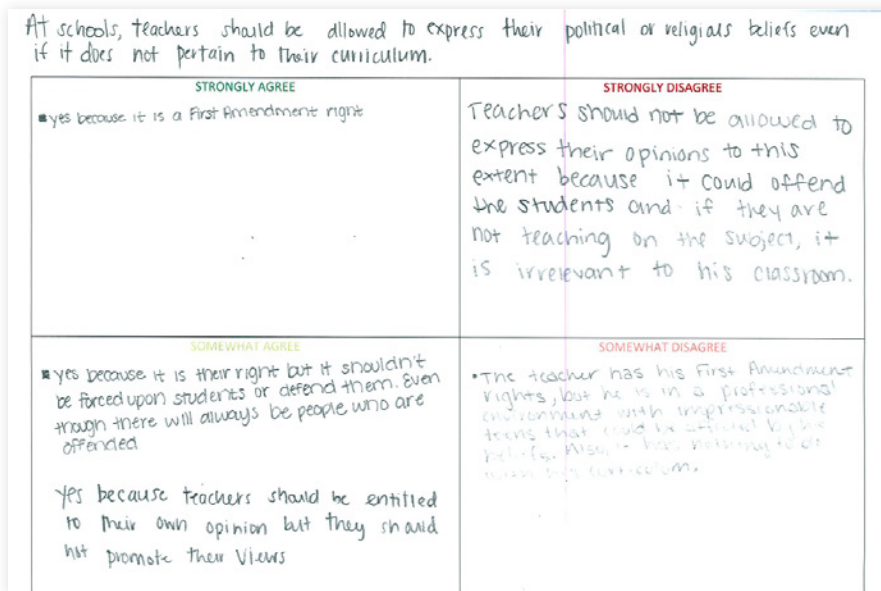 At schools, teachers should be allowed to express their political or religious beliefs even
if it does not pertain to their curriculum.
STRONGLY AGREE
▪yes because it is a First Amendment right
STRONGLY DISAGREE
Teachers should not be allowed to
express their opinions to this
extent because it could offend
the students and if they are
not teaching on the subject, it
is irrelevant to his classroom.
SOMEWHAT AGREE
▪yes because it is their right but it shouldn't
be forced upon students or defend them. Even
though there will always be people who are
offended
yes because teachers should be entitled
to their own opinion but they should
not promote their views
SOMEWHAT DISAGREE
•The teacher has his First Amendment
rights, but he is in a professional
environment with impressionable
teens that could be affected by his
beliefs. Also, it has nothing to do
with his curriculum.